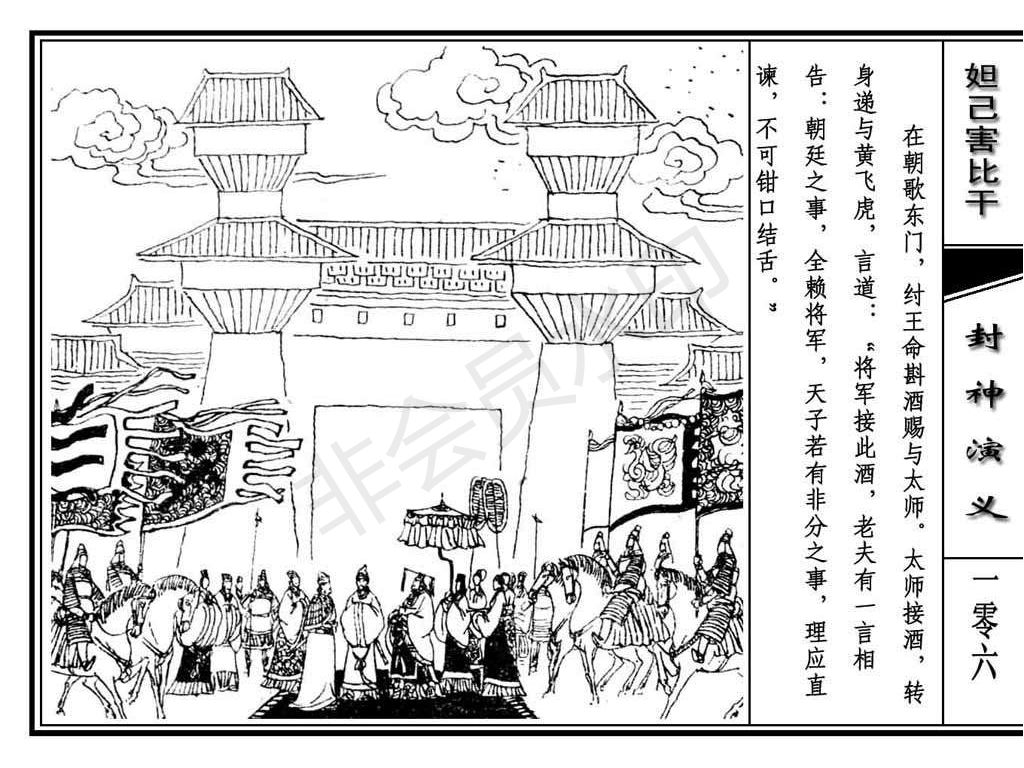 妲己害比干
封神演义
一零六
在朝歌东门，纣王命斟酒赐与太师。太师接酒，转
身递与黄飞虎，言道：“将军接此酒，老夫有一言相
告：朝廷之事，全赖将军，天子若有非分之事，理应直
谏，不可钳口结舌。”
非会员水印